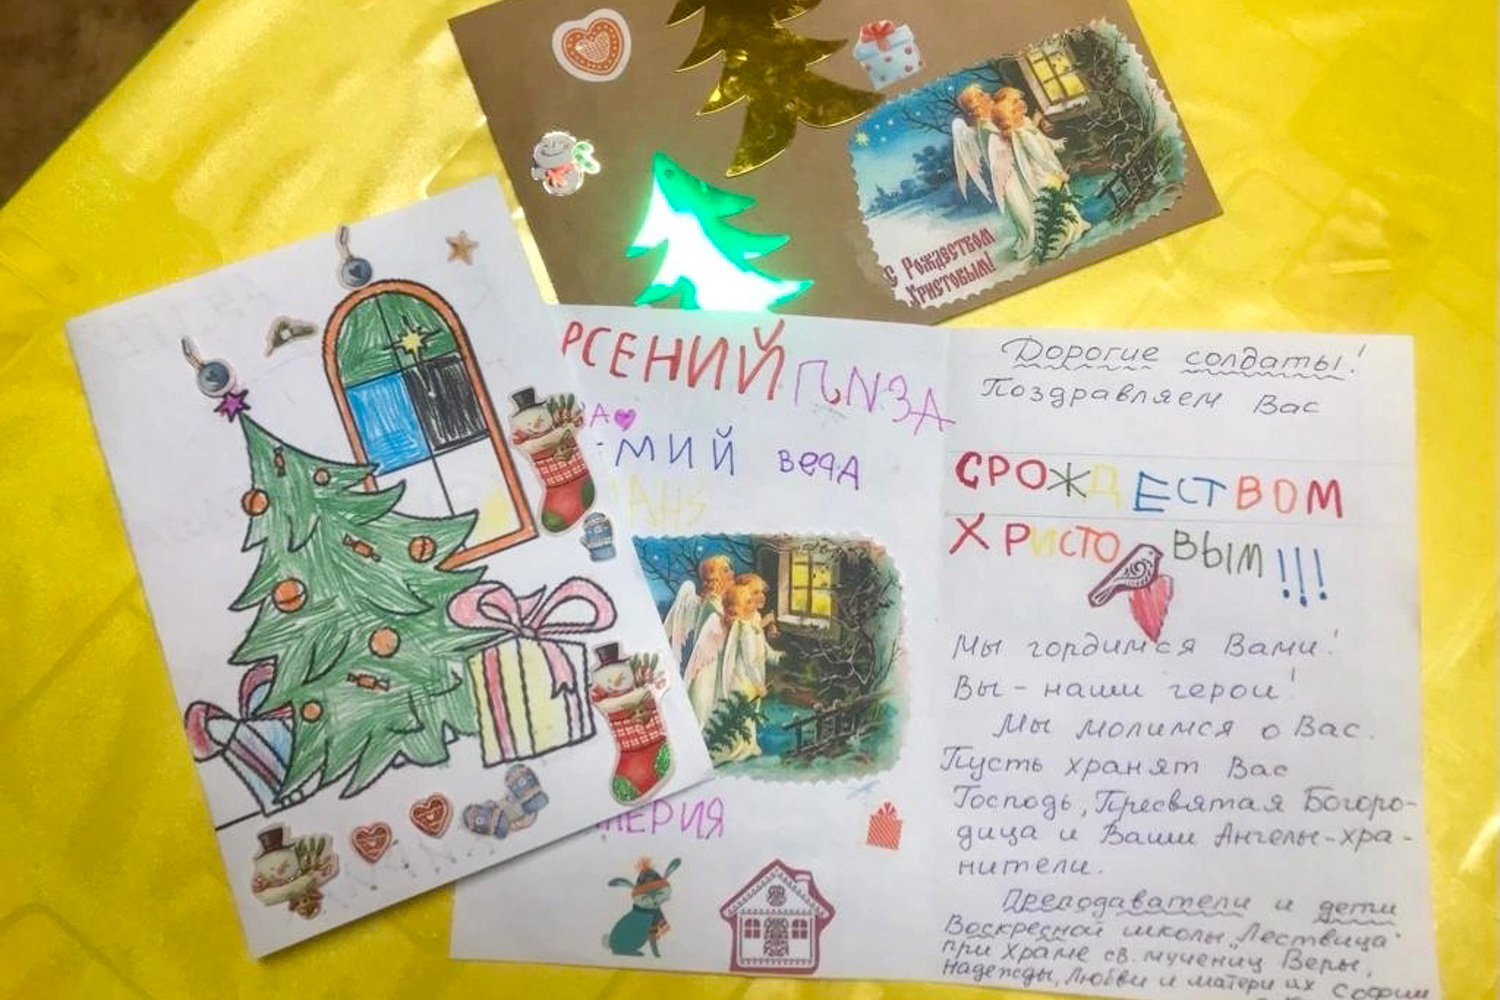 С Рождеством
Христовым!
РСЕНИЙ
ВЕРА
МИЙ
ЕРИЯ
Дорогие солдаты!
Поздравляем Вас
С РОЖДЕСТВОМ
ХРИСТОВЫМ!!!
Мы гордимся Вами!
Вы - наши герои!
Мы молимся о Вас.
Пусть хранят Вас
Господь, Пресвятая Богоро-
дица и Ваши Ангелы-хра-
нители.
Преподаватели и дети
Воскресной школы "Лествица"
при Храме св. мучениц Веры,
Надежды, Любви и матери их Софии